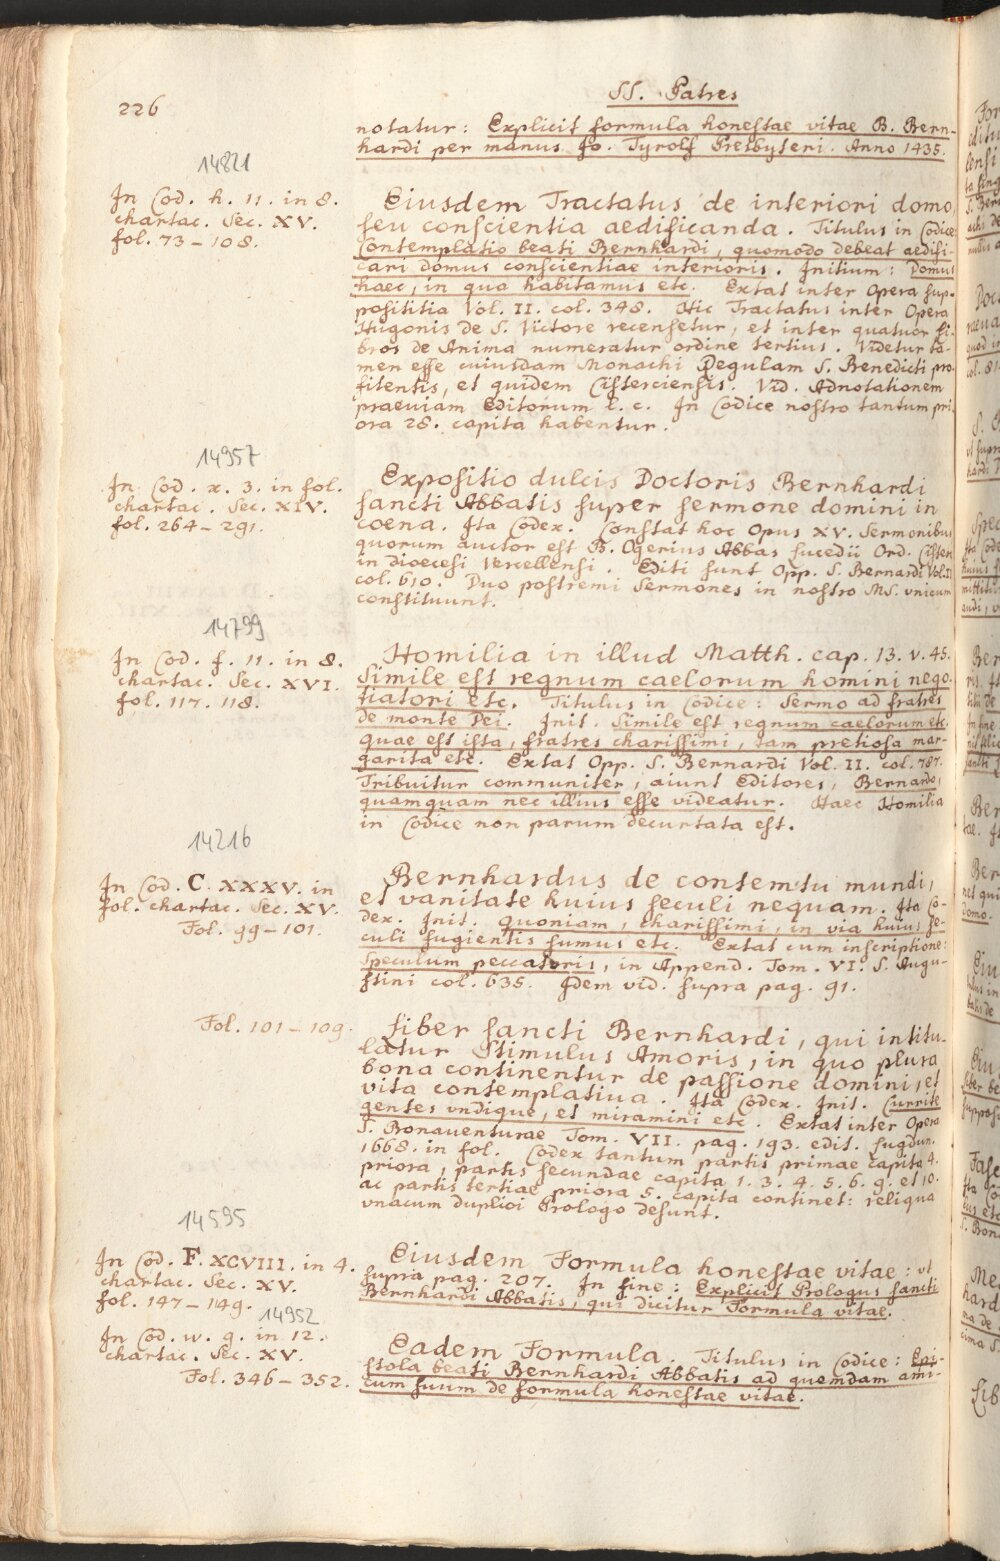 226
SS. Patres
notatur: Explicit formula honestae vitae B. Bern-
hardi per manus Jo. Tyrolf Presbyteri. Anno 1435.
14821
In Cod. h. 11. in 8.
chartac. Sec. XV.
fol. 73–108.
Eiusdem Tractatus de interiori domo,
seu conscientia aedificanda. Titulus in Codice
Contemplatio beati Bernhardi, quomodo debeat aedifi-
cari domus conscientiae interioris. Initium: Domus
haec, in qua habitamus etc. Extat inter Opera sup-
posititia Vol. II. col. 348. Hic Tractatus inter Opera
Hugonis de S. Victore recensetur, et inter quatuor Li-
bros de Anima numeratur ordine tertius. Videtur ta-
men esse cuiusdam Monachi Regulam S. Benedicti pro-
fitentis, et quidem Cisterciensis. Vid. Adnotationem
praeviam Editorum l. c. In Codice nostro tantum pri-
ora 28. capita habentur.
14957
In Cod. x. 3. in fol.
chartac. Sec. XIV.
fol. 264–291.
Expositio dulcis Doctoris Bernhardi
sancti Abbatis super sermone domini in
coena. Ita Codex. Constat hoc Opus XV. Sermonibus
quorum auctor est B. Ogerius Abbas Lucedii Ord. Cisterc.
in dioecesi Vercellensi. Editi sunt Opp. S. Bernardi Vol. II
col. 610. Duo postremi Sermones in nostro MS. vnicum
constituunt.
14799
In Cod. f. 11. in 8.
chartac. Sec. XVI.
fol. 117. 118.
Homilia in illud Matth. cap. 13. v. 45.
Simile est regnum caelorum homini nego-
tiatori etc. Titulus in Codice: Sermo ad fratres
de monte Dei. Init. Simile est regnum caelorum etc.
quae est ista, fratres charissimi, tam pretiosa mar-
garita etc. Extat Opp. S. Bernardi Vol. II. col. 787.
Tribuitur communiter, aiunt Editores, Bernardo,
quamquam nec illius esse videatur. Haec Homilia
in Codice non parum decurtata est.
14216
In Cod. C. XXXV. in
fol. chartac. Sec. XV.
Fol. 99–101.
Bernhardus de contemtu mundi,
et vanitate huius seculi nequam. Ita Co-
dex. Init. Quoniam, charissimi, in via huius se-
culi fugientis sumus etc. Extat cum inscriptione:
Speculum peccatoris, in Append. Tom. VI. S. Augu-
stini col. 635. Idem vid. supra pag. 91.
Fol. 101–109.
Liber sancti Bernhardi, qui intitu-
latur Stimulus Amoris, in quo plura
bona continentur de passione domini, et
vita contemplatiua. Ita Codex. Init. Currite
gentes vndique, et miramini etc. Extat inter Opera
S. Bonauenturae Tom. VII. pag. 193. edit. Lugdun.
1668. in fol. Codex tantum partis primae capita 4.
priora, partis secundae capita 1. 3. 4. 5. 6. 9. et 10.
ac partis tertiae priora 5. capita continet: reliqua
vnacum duplici Prologo desunt.
14595
In Cod. F. XCVIII. in 4.
chartac. Sec. XV.
fol. 147–149.
Eiusdem Formula honestae vitae: ut
supra pag. 207. In fine: Explicit Prologus sancti
Bernhardi Abbatis, qui dicitur Formula vitae.
14952
In Cod. w. 9. in 12.
chartac. Sec. XV.
Fol. 346–352.
Eadem Formula. Titulus in Codice: Epi-
stola beati Bernhardi Abbatis ad quemdam ami-
cum suum de formula honestae vitae.